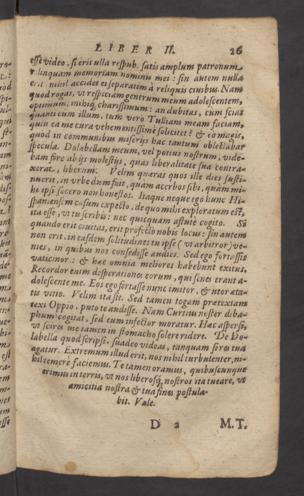 LIBER II. 26
esse video, si erit ulla respub. satis amplum patronum
relinquam memoriam nominis mei: sin autem nulla
erit nihil accidet ei separatim à reliquis civibus. Nam
quod rogas, ut respiciam generum meum adolescentem,
optimum, mihiq; charissimum: an dubitas, cum scias
quanti cum illum, tum verò Tulliam meam faciam,
quin ea me cura vehementissimè solicitet? & eò magis,
quod in communibus miseriis hac tantùm oblectabar
specula. Dolabellam meum, vel potius nostrum, vide-
bam fore ab ijs molestiis, quas liberalitate sua contra-
xerat, liberum. Velim quæras quos ille dies susti-
nuerit, in urbe dum fuit, quàm acerbos sibi, quàm mi-
hi ipsi socero non honestos. Itaque neque ego hunc Hi-
spaniensem casum expecto, de quo mihi exploratum est,
ita esse, ut tu scribis: nec quicquam astutè cogito. Si
quando erit civitas, erit profectò nobis locus: sin autem
non erit, in easdem solitudines tu ipse (ut arbitror) ve-
nies, in quibus nos consedisse audies. Sed ego fortassis
vaticinor: & hæc omnia meliores habebunt exitus.
Recordor enim desperationes eorum, qui senes erant a-
dolescente me. Eos ego fortasse nunc imitor, & utor æta-
tis vitio. Velim ita sit. Sed tamen togam prætextam
texi Oppio, puto te audisse. Nam Curtius noster diba-
phum cogitat, sed eum infector moratur. Hæc aspersi,
ut scires me tamen in stomacho solere ridere. De Do-
labella quod scripsi, suadeo videas, tanquam si res tua
agatur. Extremum illud erit, nos nihil turbulenter, ni-
hil temerè faciemus. Te tamen oramus, quibuscunque
erimus in terris, ut nos liberosq; nostros ita tueare, ut
amicitia nostra & tua fides postula-
bit. Vale.
D 2 M.T.